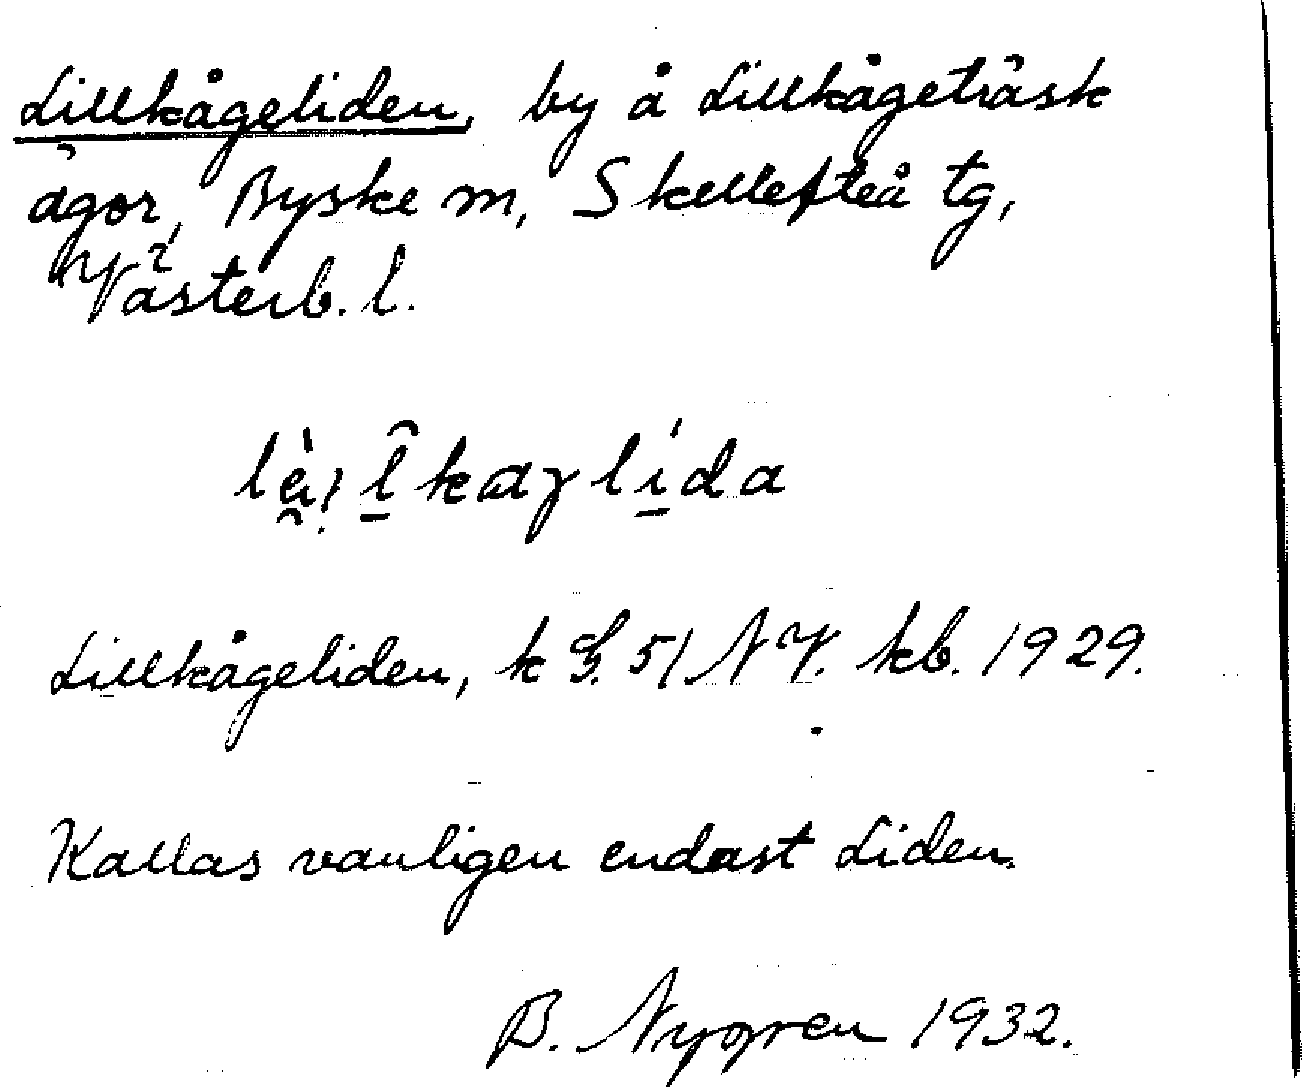 Lillkågeliden, by å Lillkågeträsk
ägor, Byske m, Skellefteå tg,
Västerb. l.
Lillkågeliden, k G. 51 NV. kb. 1929.
Kallas vanligen endast Liden.
B. Nygren 1932.